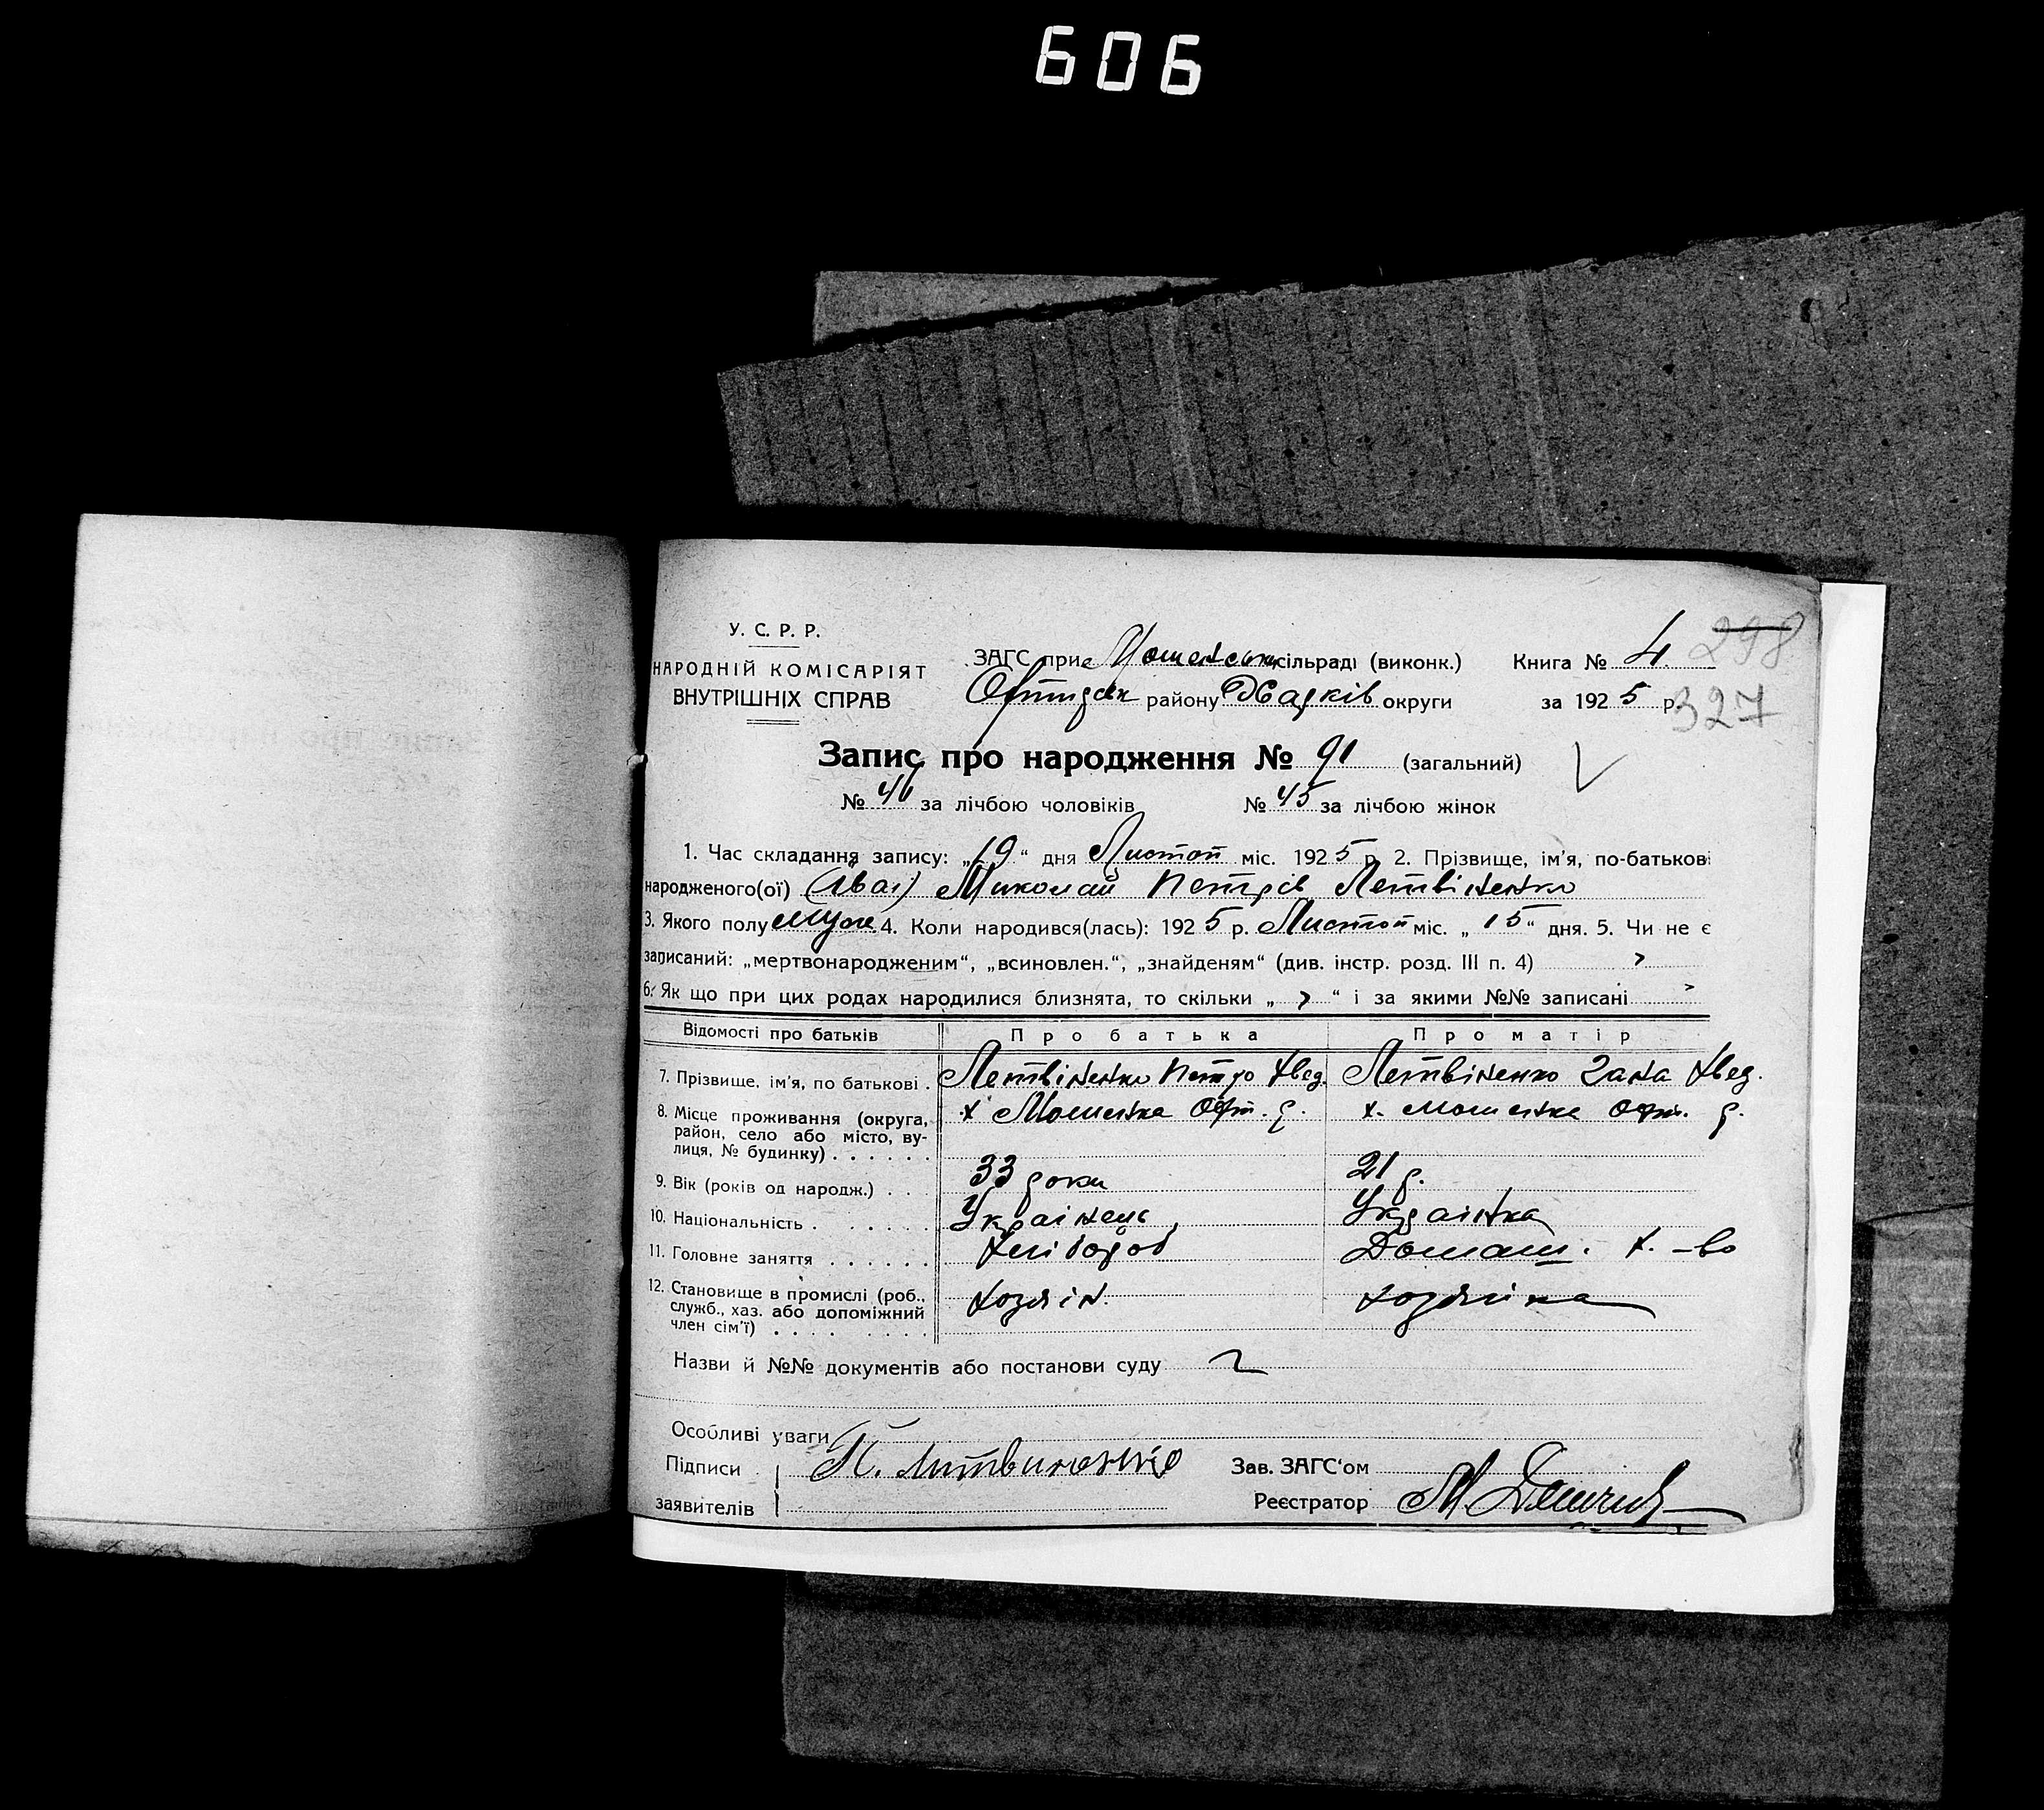 606
У. С. Р. Р.
НАРОДНІЙ КОМІСАРІЯТ
ВНУТРІШНІХ СПРАВ
ЗАГС при сільраді (виконк.)
району Харків округи
Книга № 4
298
за 1925 р.
327
Запис про народження № 91 (загальний)
№ 46 за лічбою чоловіків № 45 за лічбою жінок
1. Час складання запису: „19“ дня Листоп міс. 1925 р. 2. Прізвище, ім'я, по-батькові
народженого(ої) Миколай Петрів Летвіненко
3. Якого полу муж. 4. Коли народився(лась): 1925 р. Листоп міс. „15“ дня. 5. Чи не є
записаний: „мертвонародженим“, „всиновлен.“, „знайденям“ (див. інстр. розд. III п. 4)
6. Як що при цих родах народилися близнята, то скільки „ “ і за якими №№ записані
Відомості про батьків Про батька Про матір
7. Прізвище, ім'я, по батькові . Летвіненко Петро Хвед. Летвіненко Хвед.
8. Місце проживання (округа, район, село або місто, вулиця, № будинку) . . . . . . х Мошенка х. Мошенка
9. Вік (років од народж.) . . 33 роки 21 р.
10. Національність . . . . . . Українець Українка
11. Головне заняття . . . . . . Хлібороб Домаш. х.-во
12. Становище в промислі (роб., служб., хаз. або допоміжний член сім'ї) . . . . . . . . хозяін. хозяйка
Назви й №№ документів або постанови суду
Особливі уваги
Підписи
заявителів
Зав. ЗАГС'ом
Реєстратор